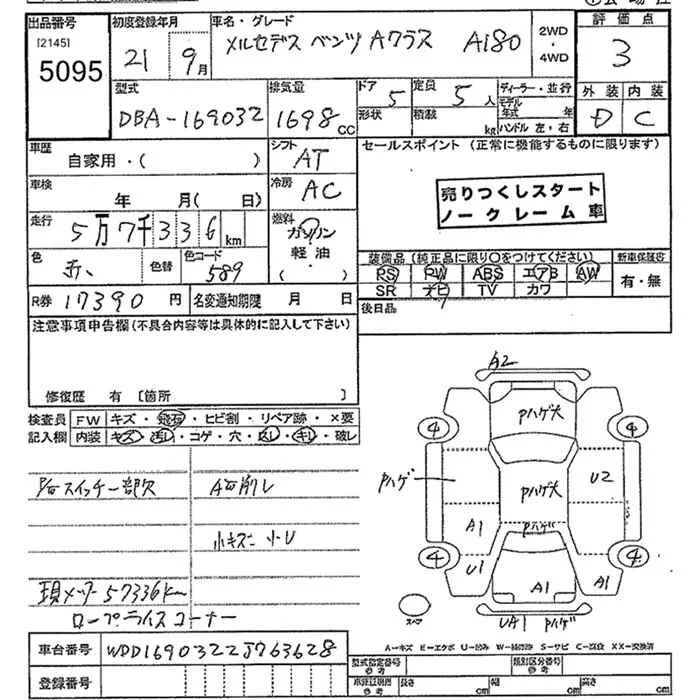 出品番号 初度登録年月 車名・グレード 2WD・4WD 評価点
[2145] 5095 21 9月 メルセデス ベンツ Aクラス A180 3
型式 排気量 ドア 定員 ディーラー・並行 外装 内装
DBA-169032 1698cc 5 5人 モデル年式 年 D C
形状 積載 kg ハンドル 左・右
車歴 シフト セールスポイント(正常に機能するものに限ります)
自家用・( ) AT
車検 冷房
年 月( 日) AC 売りつくしスタート
ノークレーム車
走行 燃料
5万7千336km ガソリン
軽油
( )
色 色替 色コード 装備品(純正品に限り○をつけてください) 新車保証書
赤 589 PS PW ABS エアB AW 有・無
SR ナビ TV カワ
R券 17390円 名変通知期限 月 日 後日品
注意事項申告欄(不具合内容等は具体的に記入して下さい)
修復歴 有 [箇所 ]
検査員 FW キズ・飛石・ヒビ割・リペア跡・×要
記入欄 内装 キズ・汚れ・コゲ・穴・・キレ・破レ
スイッチ一部欠
小キズ 小U
現メーター57336km
ロープライスコーナー
A2
Pハゲ大
4 4
Pハゲ Pハゲ大 U2
A1 Pハゲ
4 4
U1 A1 A1
スペア UA1 Pハゲ
A-キズ E-エクボ U-凹み W-補修跡 S-サビ C-腐食 XX-交換済
車台番号 WDD1690322J763628 型式指定番号 参考 類別区分番号 参考
登録番号 参考 長さ cm 幅 cm 高さ cm